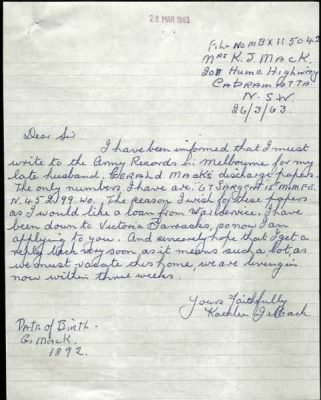 28 MAR 1963
File No MBX 115042
Mrs K. J. MACK.
208 Hume Highway
CABRAMATTA
N-S.W.
26/3/63.
Dear Sir
I have been informed that I must
write to the Army Records in Melbourne for my
late husband, GERALD MACK's discharge papers.
The only numbers I have are.
N. 452199. W0. The reason I wish for these papers
as I would like a loan from I have
been down to Victoria Barracks, so now I am
applying to you. And sincerely hope that I get a
reply back very soon as it means such a lot, as
we must vacate this home, we are living in
now within three weeks.
Yours Faithfully
Kathleen J Mack.
Date of Birth.
G. Mack.
1892.